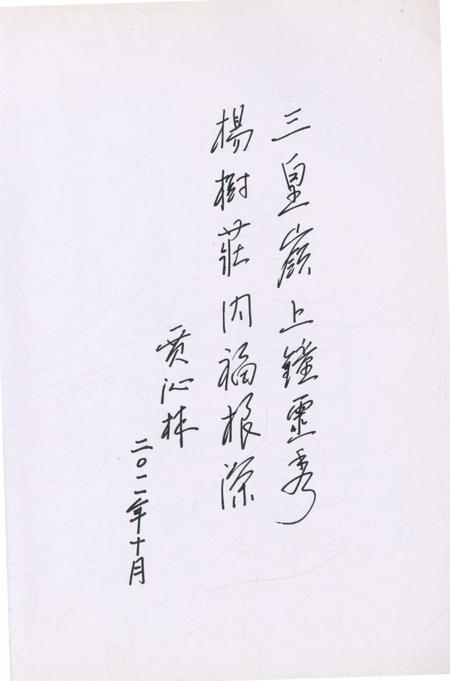 三皇嶺上鐘靈秀
楊樹莊内福根深
贾沁林
二〇一二年十月